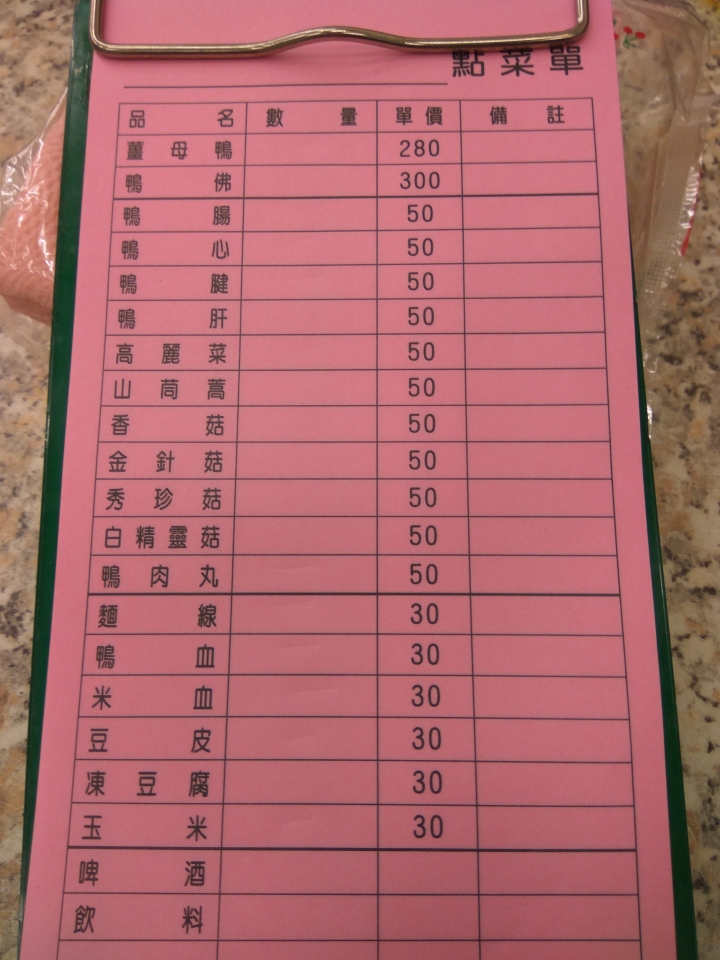 點菜單
品名 數量 單價 備註
薑母鴨 280
鴨佛 300
鴨腸 50
鴨心 50
鴨腱 50
鴨肝 50
高麗菜 50
山茼蒿 50
香菇 50
金針菇 50
秀珍菇 50
白精靈菇 50
鴨肉丸 50
麵線 30
鴨血 30
米血 30
豆皮 30
凍豆腐 30
玉米 30
啤酒
飲料